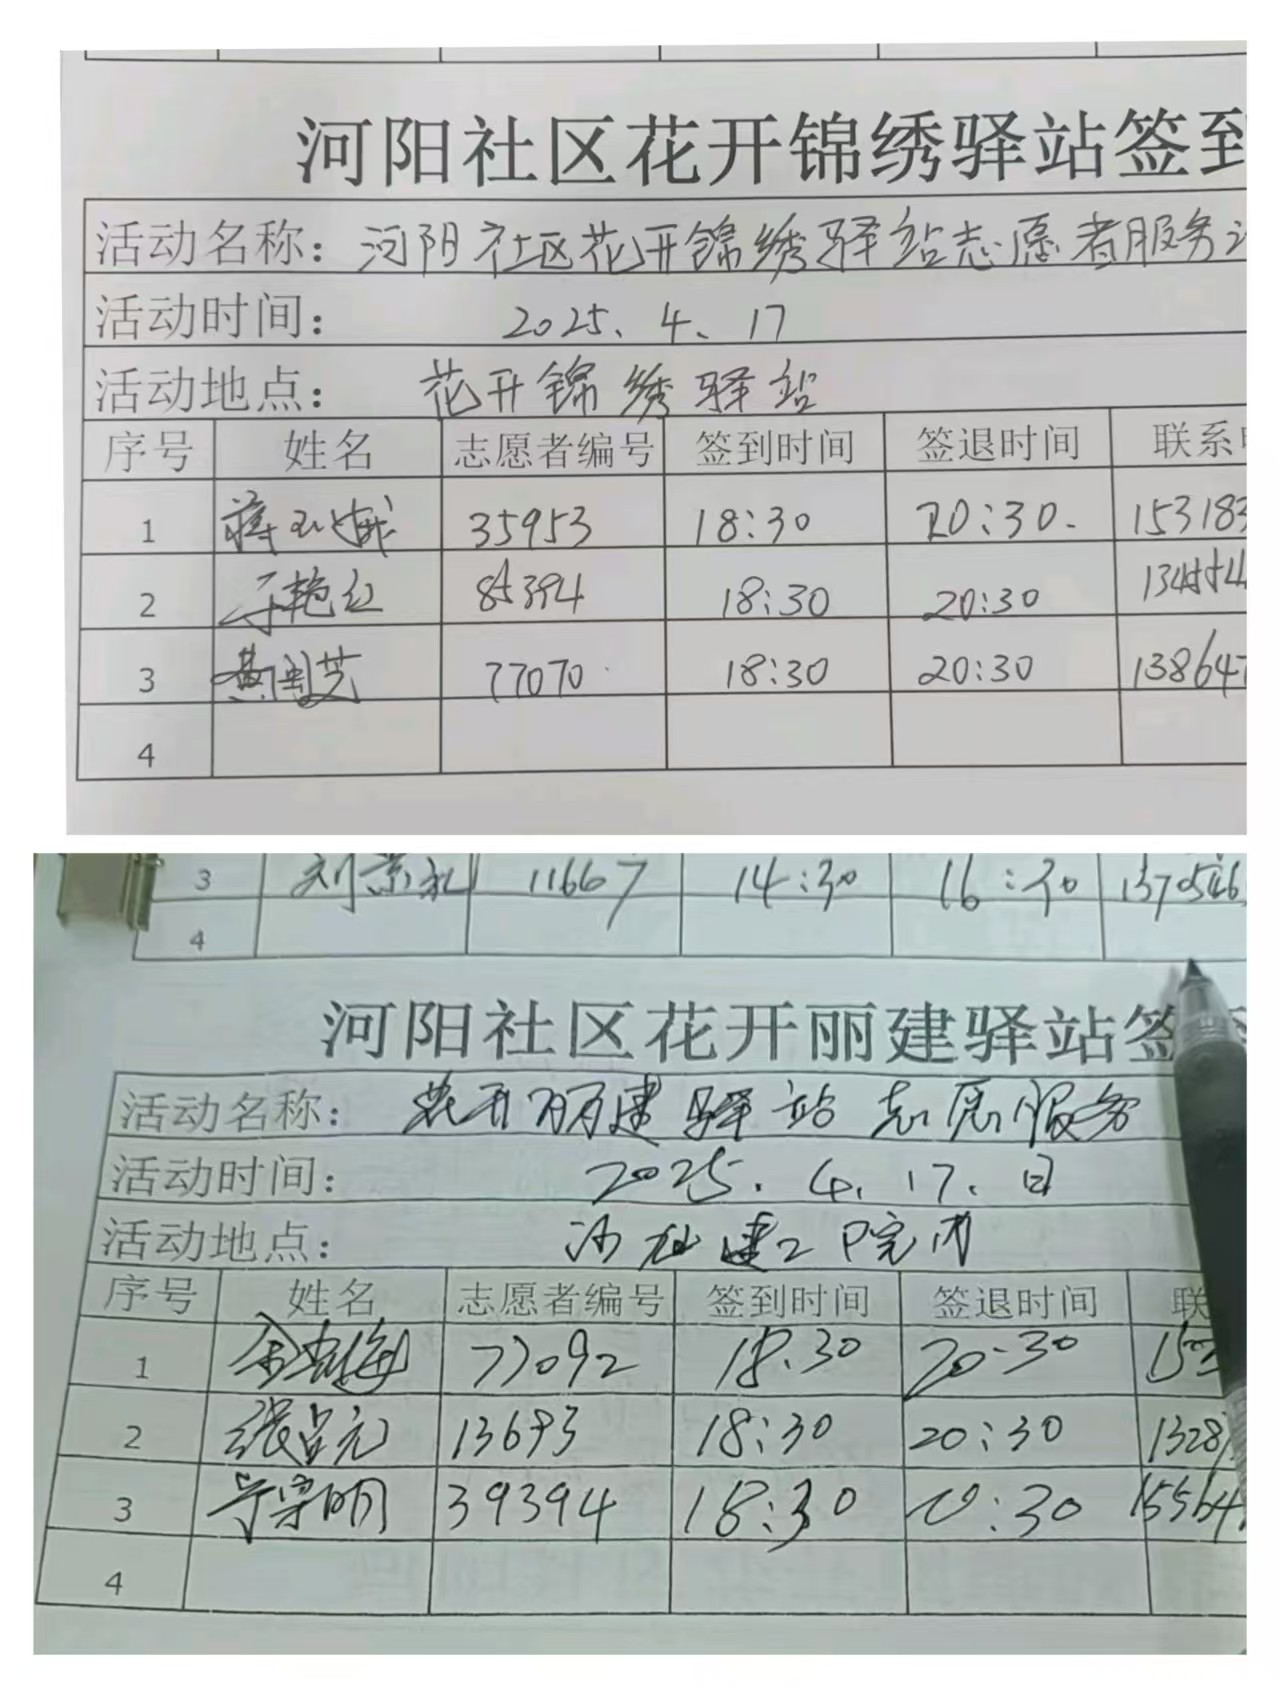 河阳社区花开锦绣驿站签到
活动名称：河阳社区花开锦绣驿站志愿者服务
活动时间： 2025、4、17
活动地点： 花开锦绣驿站
序号 姓名 志愿者编号 签到时间 签退时间 联系
1 35953 18:30 20:30. 153183
2 于艳红 85394 18:30 20:30
3 77070 18:30 20:30 138647
4
3 刘景礼 11667 14:30 16:30
4
河阳社区花开丽建驿站签
活动名称： 花开丽建驿站志愿服务
活动时间： 2025.4.17.日
活动地点： 建工院内
序号 姓名 志愿者编号 签到时间 签退时间 联
1 77092 18.30 20-30
2 张占元 13693 18:30 20:30 1328
3 39394 18:30 20:30 15564
4